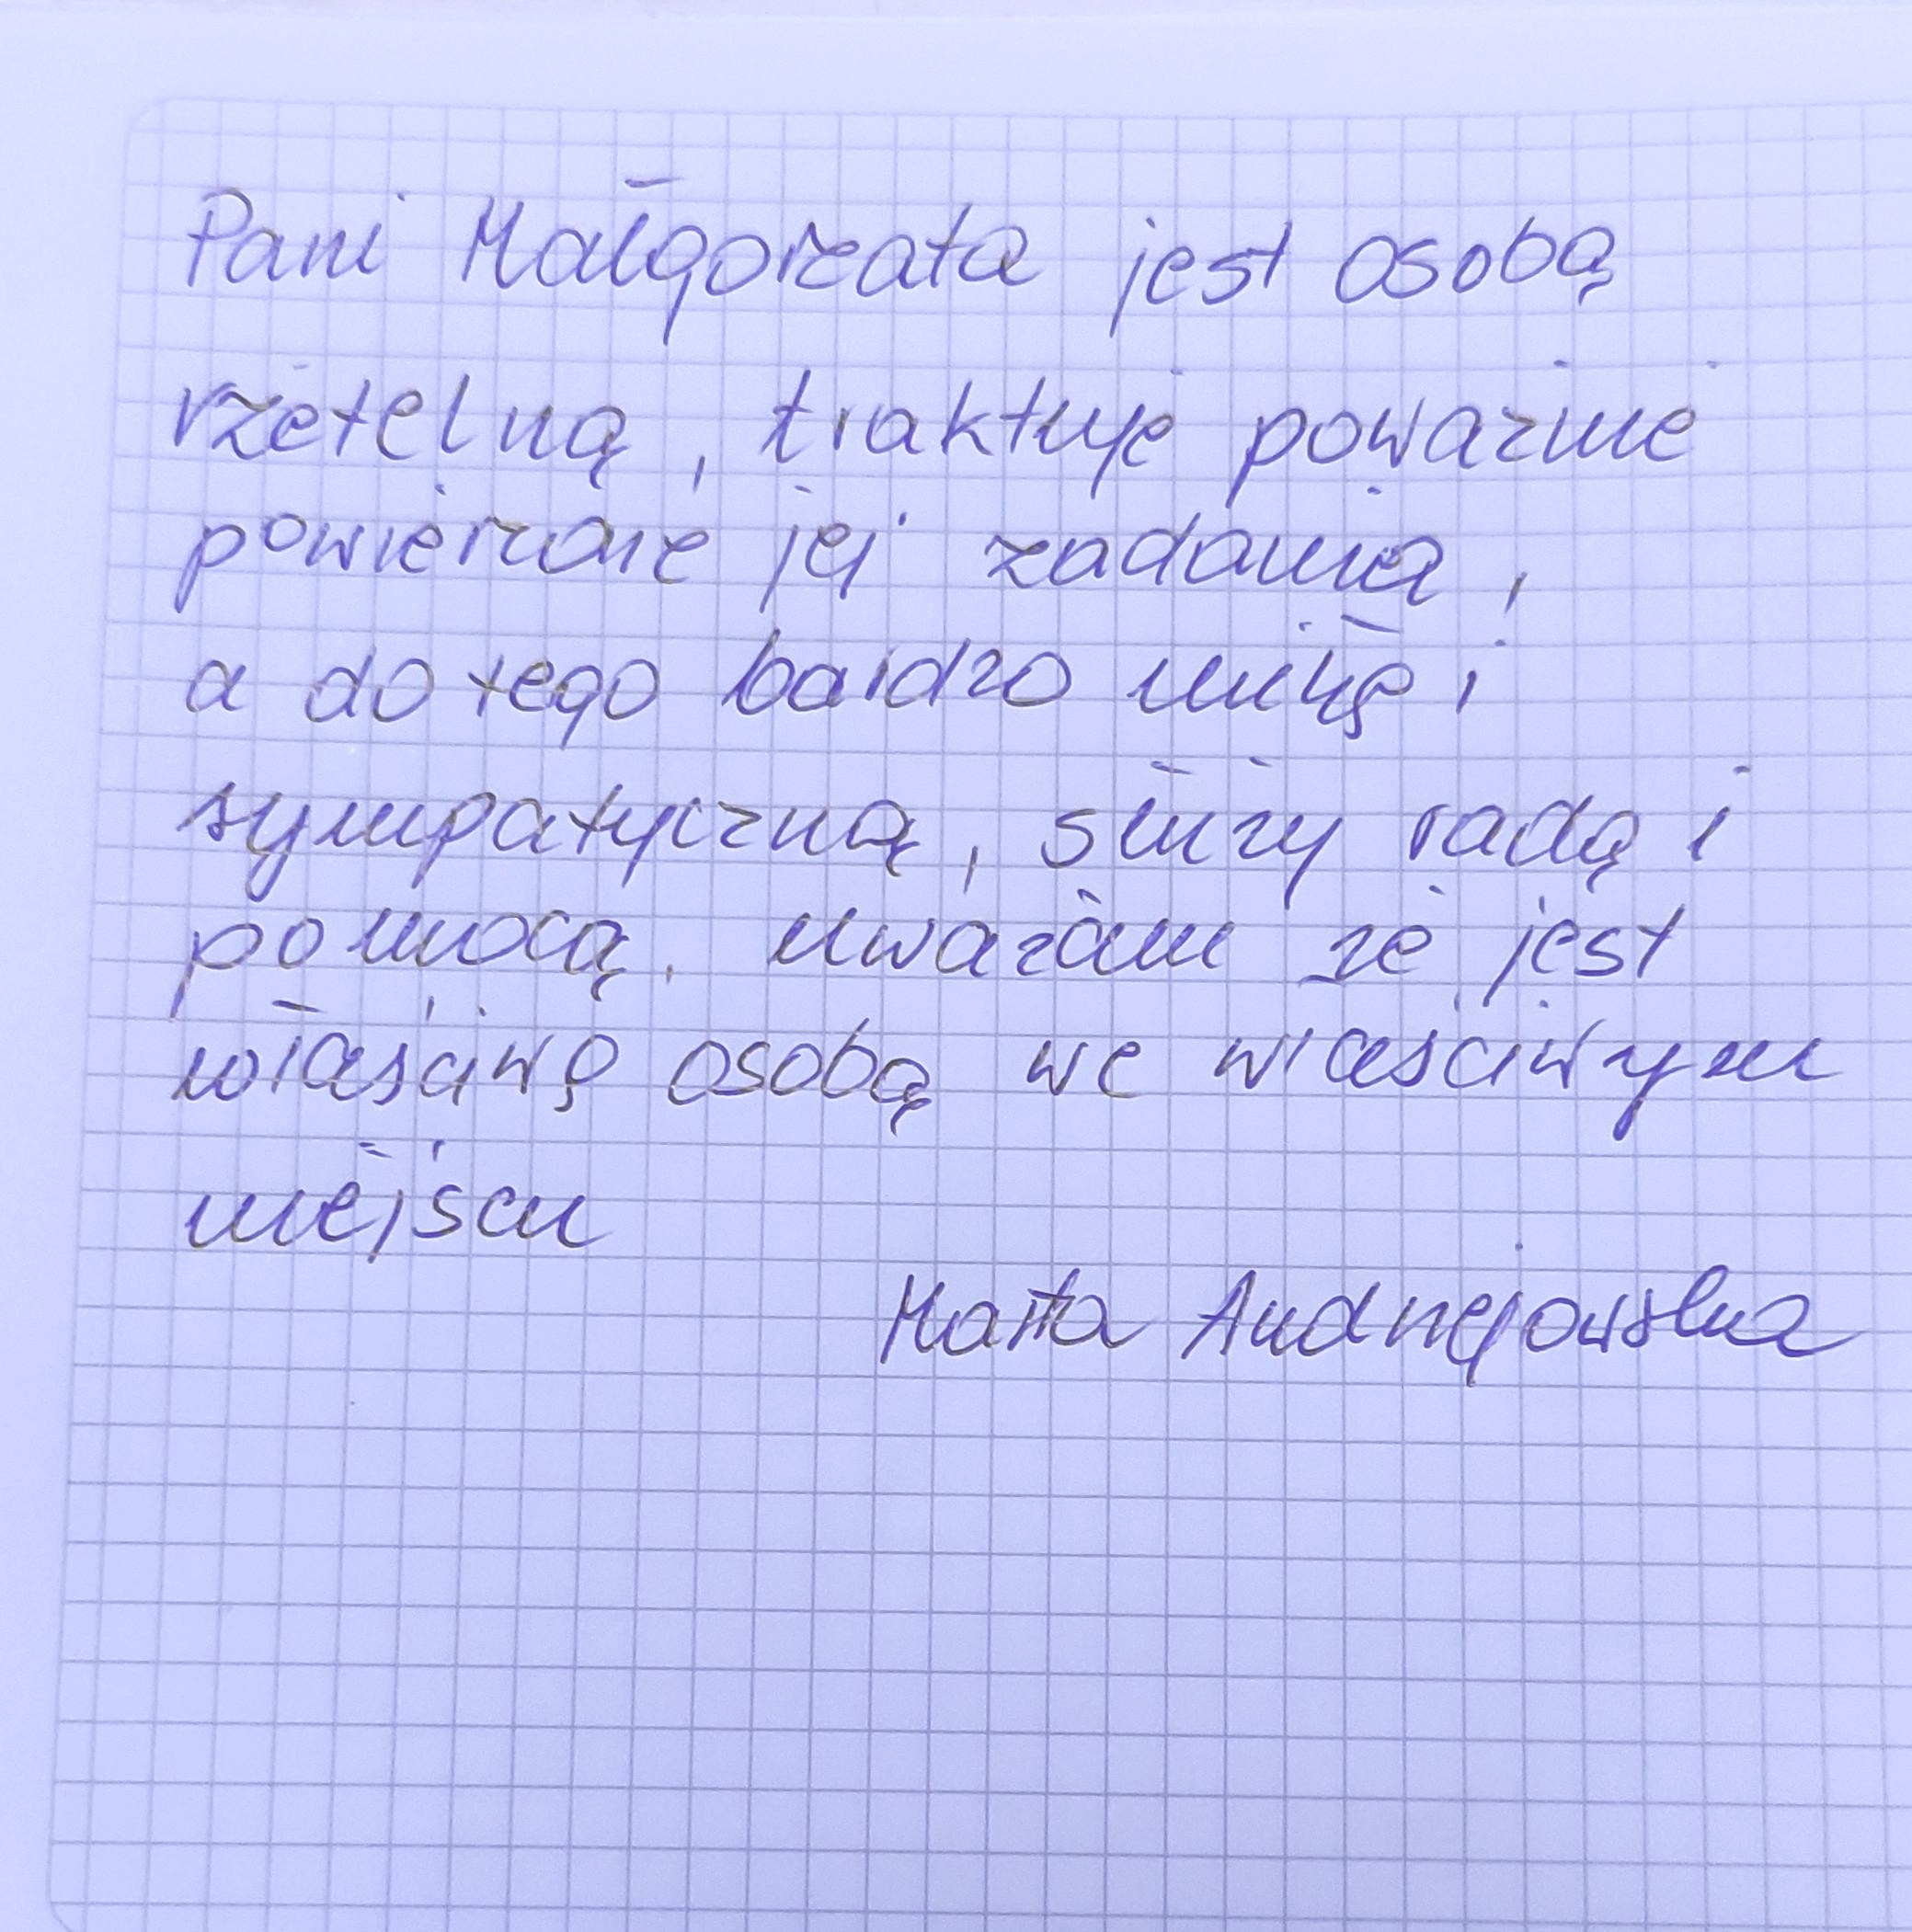 Pani Małgorzata jest osobą
rzetelną, traktuje poważnie
powierzone jej zadania,
a do tego bardzo miłą i
sympatyczną, służy radą i
pomocą. uważam że jest
właściwą osobą we właściwym
miejscu
Marta Andrzejowska